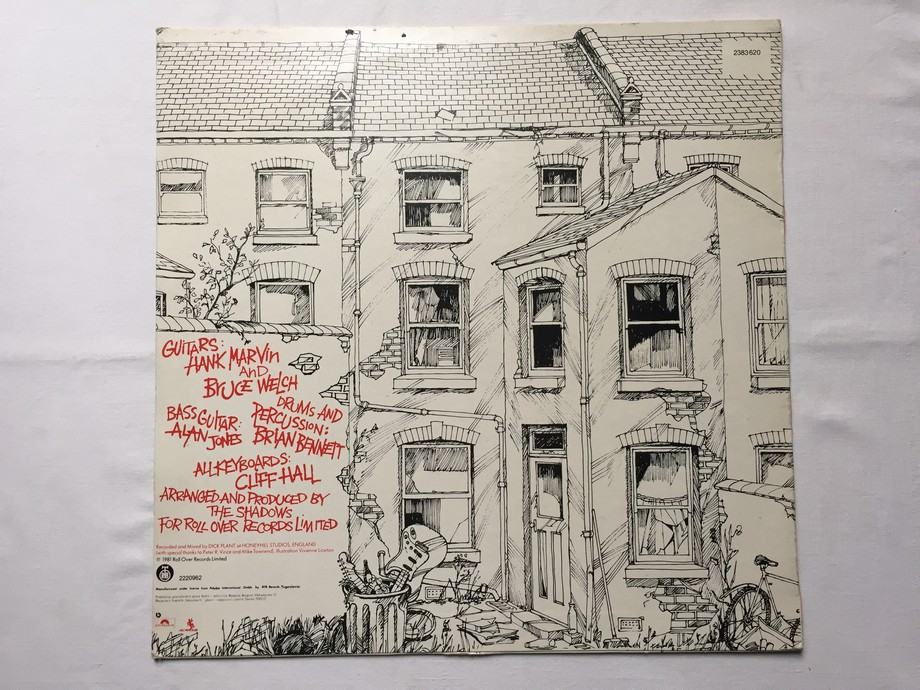 2383 620
GUITARS:
HANK MARVIN
AND
BRUCE WELCH
DRUMS AND
BASS GUITAR: PERCUSSION:
ALAN JONES BRIAN BENNETT
ALL KEYBOARDS:
CLIFF HALL
ARRANGED AND PRODUCED BY
THE SHADOWS
FOR ROLL OVER RECORDS LIMITED
Recorded and Mixed by DICK PLANT at HONEYHILL STUDIOS, ENGLAND
(with special thanks to Peter R. Vince and Mike Townend. Illustration Vivienne Loxton
℗ 1981 Roll Over Records Limited
2220962
Manufactured under licence from Polydor International Gmbh. by RTB Records, Yugoslavia